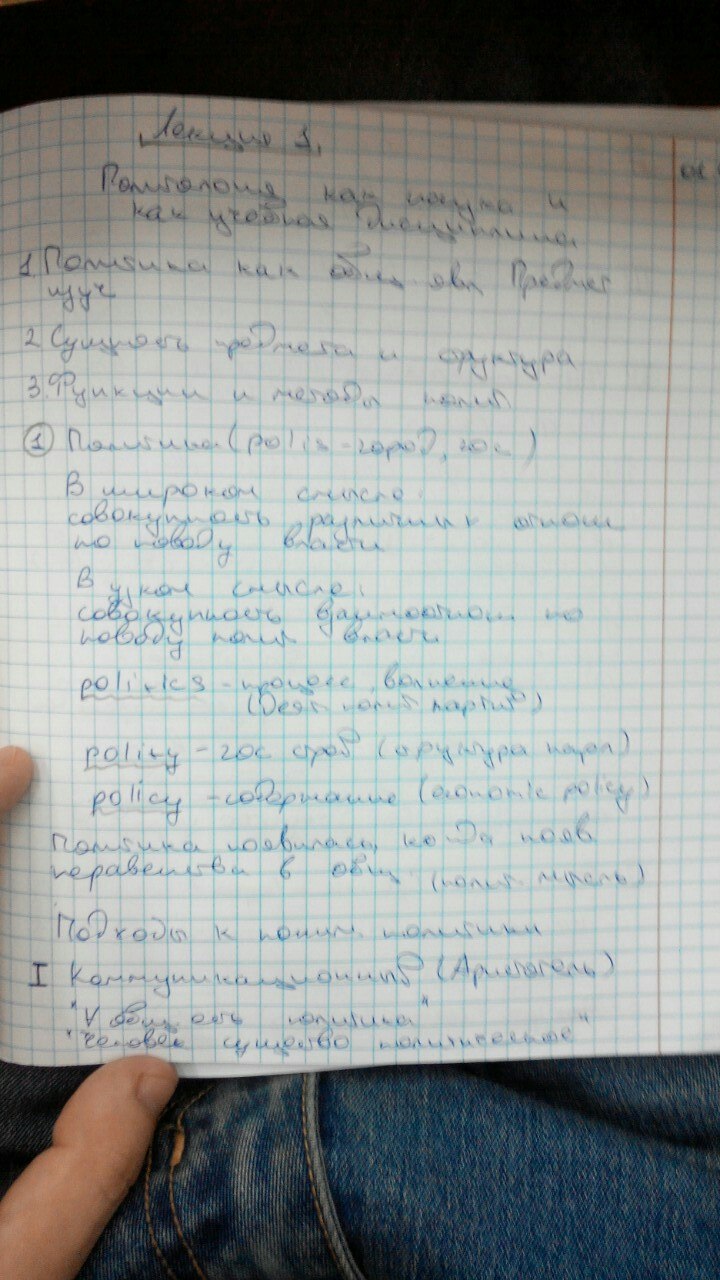 Лекция 1.
Политология как наука и
как учебная дисциплина
1. Политика как общ. явл. Предмет
изуч
2. Сущность предмета и структура
3. Функции и методы полит
1 Политика (polis - город, гос)
В широком смысле:
совокупность различных отнош
по поводу власти
В узком смысле:
совокупность взаимоотнош по
поводу полит власти
politics - процесс,
(деят. полит партий)
polity - гос строй (структура)
policy - содержание (economic policy)
Политика появилась, когда появ
неравенства в общ. (полит. мысль)
Подходы к поним. политики
I Коммуникационный (Аристотель)
"∀ общ есть политика"
"Человек существо политическое"